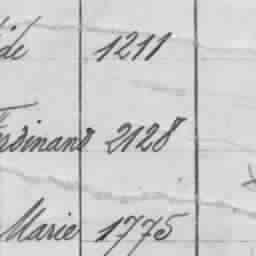 ide 1211
Ferdinand 2128
Marie 1775